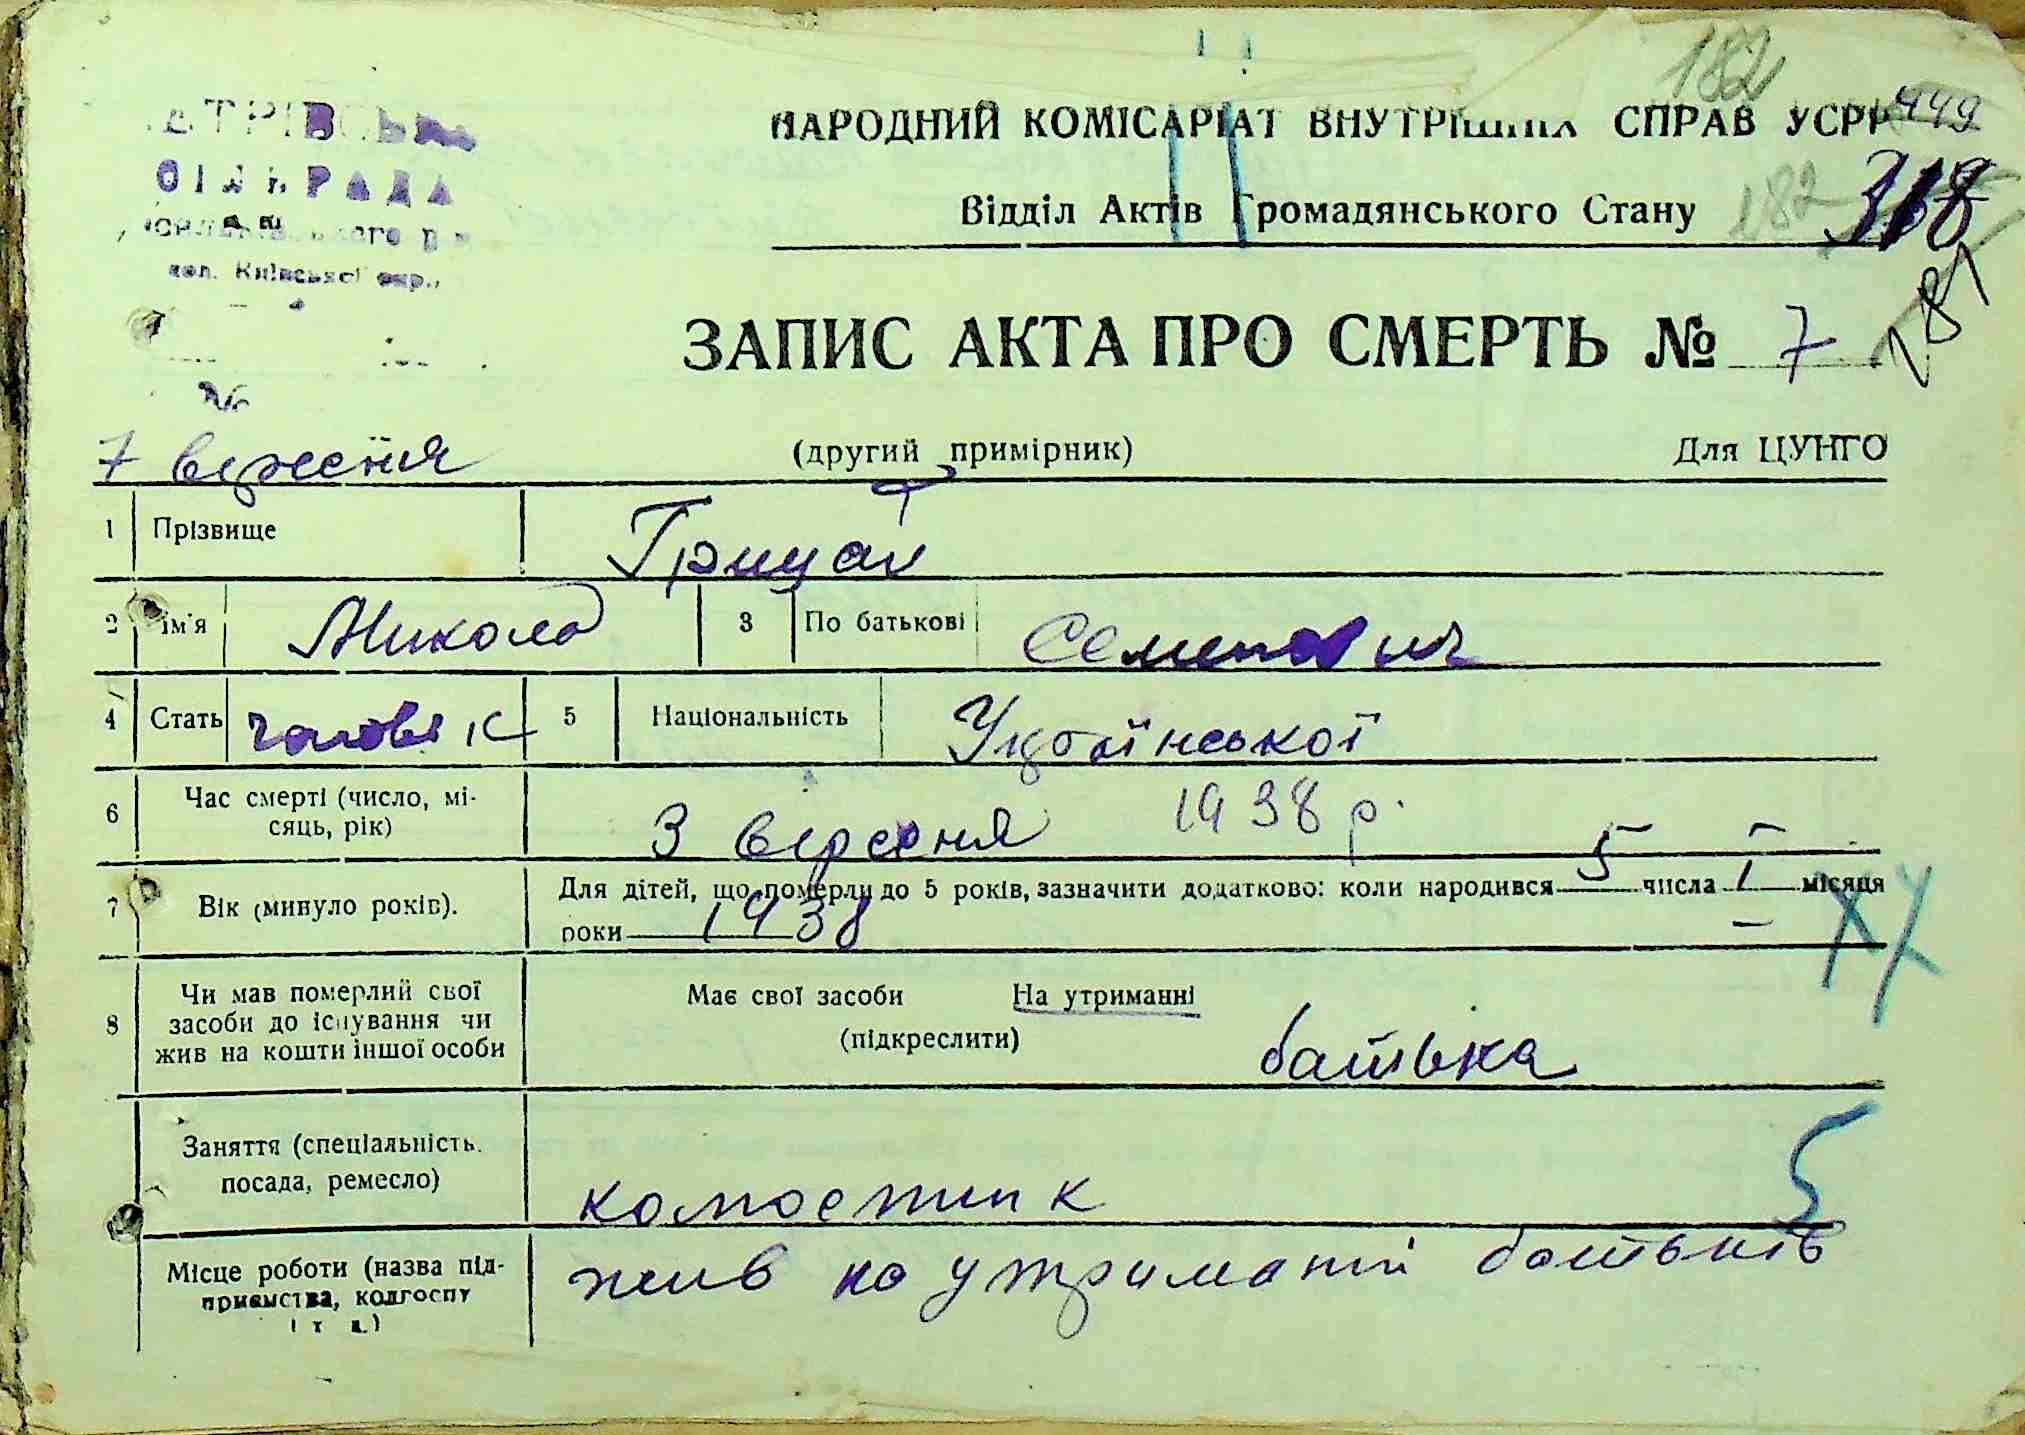 182
НАРОДНИЙ КОМІСАРІАТ ВНУТРІШНІХ СПРАВ УСРР 449
СІЛЬРАДА
Відділ Актів Громадянського Стану 182 318
Київської окр.,
181
ЗАПИС АКТА ПРО СМЕРТЬ № 7
7 вересня (другий примірник) Для ЦУНГО
1 Прізвище Грицай
2 Ім'я Микола 3 По батькові Семенович
4 Стать чоловік 5 Національність Української
6 Час смерті (число, мі-
сяць, рік) 3 вересня 1938 р.
7 Вік (минуло років). Для дітей, що померли до 5 років, зазначити додатково: коли народився 5 числа I місяця
роки 1938
8 Чи мав померлий свої
засоби до існування чи
жив на кошти іншої особи
Має свої засоби На утриманні
(підкреслити) батька
Заняття (спеціальність.
посада, ремесло) 5
Місце роботи (назва під-
приємства, колгоспу
і т. д.) жив на утриманні батьків